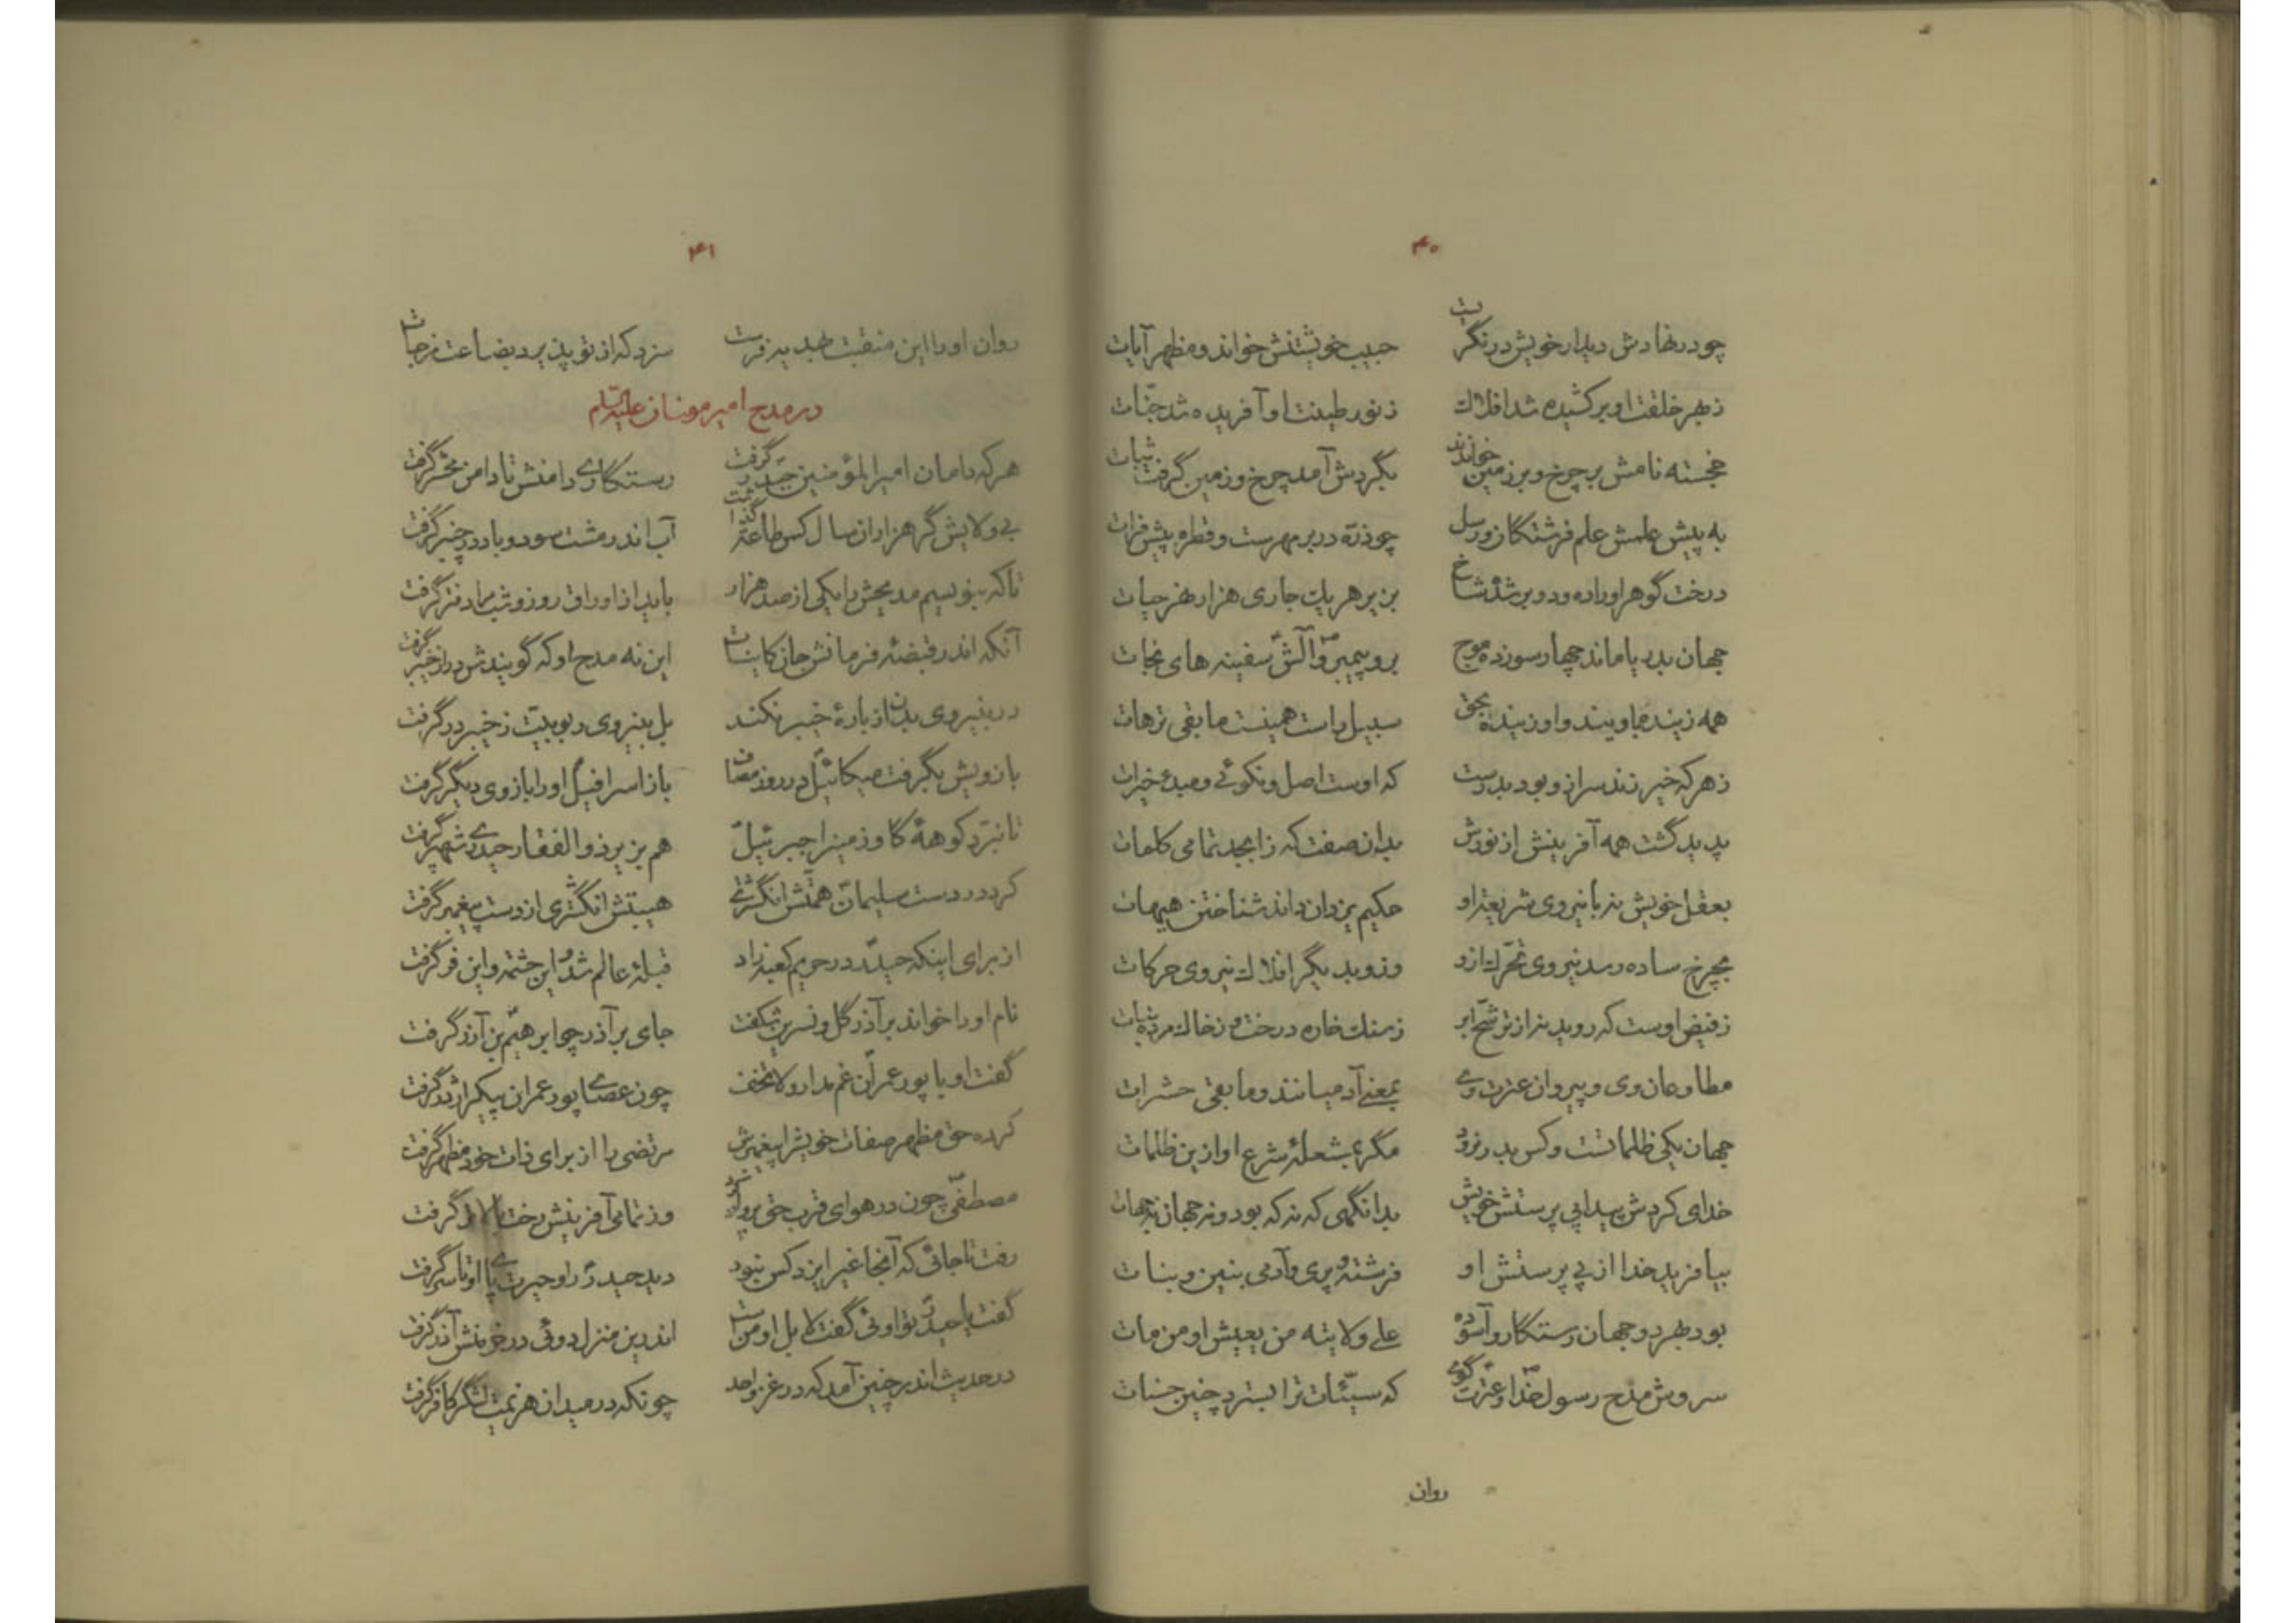 ۴۰
چو در نهادش دیدار خویش در نگریست حبیب خویشتنش خواند و مظهر آیات
ز بهر خلقت او برکشیده شد افلاک ز نور طینت او آفریده شد جنّات
خجسته نامش بر چرخ و بر زمین خواندند بگردش آمد چرخ و زمین گرفت ثبات
به پیش علمش علم فرشتگان و رسل چو ذرّه در بر مهرست و قطره پیش فرات
درخت گوهر او را ده و دو بر شد شاخ بزیر هر یک جاری هزار نهر حیات
جهان بدریا ماند چهار سو زده موج برو پیمبر و آلش سفینه های نجات
همه زینده و اویند و او زینده بحق سبیل راست همینست ما بقی ترهات
ز هر که خیر زند سر ازو بود بدرست که اوست اصل و نکوئی و مبدء خیرات
پدید گشت همه آفرینش از نورش بدان صفت که ز ابجد تمامی کلمات
بعقل خویش نه با نیروی شریعت او حکیم یزدان داند شناختن هیهات
بچرخ ساده رسد نیروی تحرّک ازو وزو بدیگر افلاک نیروی حرکات
ز فیض اوست که روید نه از ترشّح ابر ز سنک خاره درخت و ز خاک مرده نبات
مطاوعان وی و پیروان عترت وی بمعنی آدمیانند و ما بقی حشرات
جهان یکی ظلماتست و کس بدر نرود مگر بشعلهٔ شرع او ازین ظلمات
خدای کردش پیدا پی پرستش خویش بدانگهی که نه که بود و نه جهان نه جهات
بیافرید خدا از پی پرستش او فرشته و پری و آدمی بنین و بنات
بود بهر دو جهان رستکار و آسوده علی ولایته من یعیش او من مات
سروش مدح رسول خدا و عترت گوی که سیّئات ترا بسترد چنین حسنات
روان
۴۱
روان او را این منقبت هدیه فرست سزد که از تو پذیرد بضاعت مزجات
در مدح امیر مومنان علیه السلام
هر که دامان امیرالمؤمنین حیدر گرفت رستگاری دامنش تا دامن محشر گرفت
بی ولایش گر هزاران سال کس طاعت گذاشت آب اندر مشت سود و باد در چنبر گرفت
تا که بنویسیم مدیحش را یکی از صد هزار باید از اوراق روز و شب دفتر گرفت
آنکه اندر قبضهٔ فرمانش جان کاینات این نه مدح او که گویندش در از خیبر گرفت
در به نیروی بدن از بارهٔ خیبر نکند بل بنیروی ربوبیّت ز خیبر در گرفت
بازویش بگرفت میکائیل در روز مصاف باز اسرافیل او را بازوی دیگر گرفت
تا نبرّد کوههٔ گاو زمین را جبرئیل هم بزیر ذوالفقار حیدری شهپر گرفت
کرد در دست سلیمان همّتش انگشتری هیبتش انگشتری از دست پیغمبر گرفت
از برای اینکه حیدر در حریم کعبه زاد قبلهٔ عالم شد و این حشمت و این فر گرفت
نام او را خواند بر آذر گل و نسرین شکفت جای بر آذر چو ابرهیم بن آزر گرفت
گفت او با پور عمران غم مدار و لا تخف چون عصای پور عمران پیکر اژدر گرفت
کرده حق مظهر صفات خویش را پیغمبرش مرتضی را از برای ذات خود مظهر گرفت
مصطفی چون در هوای قرب حق پرواز کرد وز تمامی آفرینش رخت گرفت
رفت تا جائی که آنجا غیر ایزد کس نبود دید حیدر را و حیرت پای او تا سر گرفت
گفت یا حیدر تو اوئی گفت لا بل او منست اندرین منزل دوئی در خرمنش آذر گرفت
در حدیث اندر چنین آمد که در غزو احد چونکه در میدان هزیمت لشگر کافر گرفت